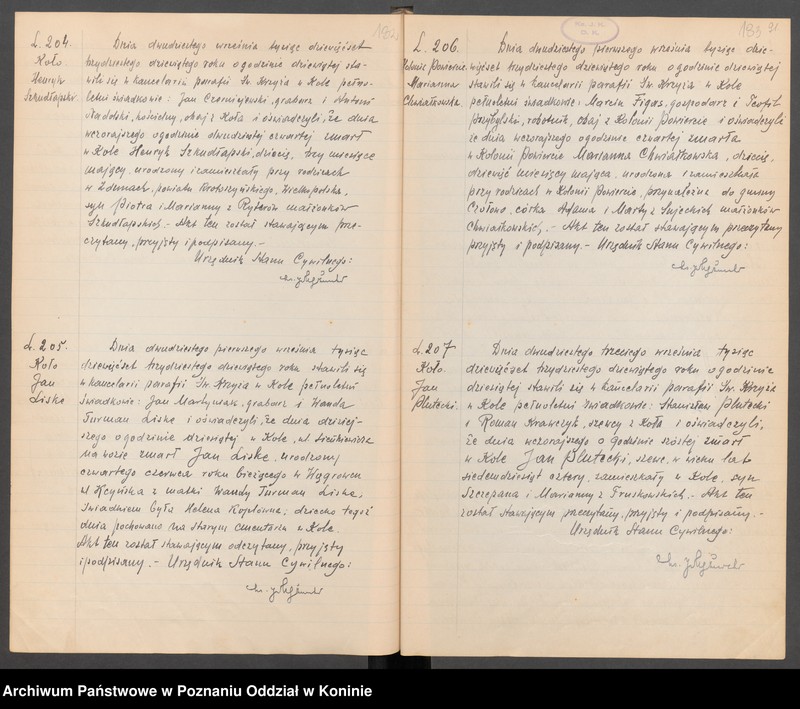 182
L. 204.
Koło.
Henryk
Szkudłapski.
Dnia dwudziestego września tysiąc dziewięćset
trzydziestego dziewiątego roku o godzinie dziewiątej sta-
wili się w kancelarii parafii Św. Krzyża w Kole pełno-
letni świadkowie: Jan Czerniejewski, grabarz i Antoni
kościelny, obaj z Koła i oświadczyli, że dnia
wczorajszego o godzinie dwudziestej czwartej zmarł
w Kole Henryk Szkudłapski, dziecię, trzy miesiące
mający, urodzony i zamieszkały przy rodzicach
w Zdunach, powiatu Krotoszyńskiego, Wielkopolska,
syn Piotra i Marianny z Ryterów małżonków
Szkudłapskich. – Akt ten został stawającym prze-
czytany, przyjęty i podpisany. –
Urzędnik Stanu Cywilnego:
L. 205.
Koło
Jan
Liske
Dnia dwudziestego pierwszego września tysiąc
dziewięćset trzydziestego dziewiątego roku stawili się
w kancelarii parafii Św. Krzyża w Kole pełnoletni
świadkowie: Jan Martyniak, grabarz i Wanda
Turman Liske i oświadczyli, że dnia dzisiej-
szego o godzinie dziewiątej w Kole, ul. Sienkiewicza
na wozie zmarł Jan Liske, urodzony
czwartego czerwca roku bieżącego w Wągrowcu
ul Kcyńska z matki Wandy Turman Liske,
Świadkiem była Helena Koplówna, dziecko tegoż
dnia pochowano na starym cmentarzu w Kole.
Akt ten został stawającym odczytany, przyjęty
i podpisany. – Urzędnik Stanu Cywilnego:
183
L. 206.
Kolonie Powiercie
Marianna
Chwiałkowska.
Dnia dwudziestego pierwszego września tysiąc dzie-
więćset trzydziestego dziewiątego roku o godzinie dziewiątej
stawili się w kancelarii parafii Św. Krzyża w Kole
pełnoletni świadkowie: Marcin Figas, gospodarz i Teofil
Przybylski, robotnik, obaj z Kolonii Powiercie i oświadczyli
że dnia wczorajszego o godzinie czwartej zmarła
w Kolonii Powiercie Marianna Chwiałkowska, dziecię,
dziewięć miesięcy mająca, urodzona i zamieszkała
przy rodzicach w Kolonii Powiercie, przynależna do gminy
Czołowo, córka Adama i Marty z Sujeckich małżonków
Chwiałkowskich. – Akt ten został stawającym przeczytany
przyjęty i podpisany. – Urzędnik Stanu Cywilnego:
L. 207
Koło.
Jan
Plutecki.
Dnia dwudziestego trzeciego września tysiąc
dziewięćset trzydziestego dziewiątego roku o godzinie
dziesiątej stawili się w kancelarii parafii Św. Krzyża
w Kole pełnoletni świadkowie: Stanisław Plutecki
i Roman Krawczyk, szewcy z Koła i oświadczyli,
że dnia wczorajszego o godzinie szóstej zmarł
w Kole Jan Plutecki, szewc, w wieku lat
siedemdziesiąt cztery, zamieszkały w Kole, syn
Szczepana i Marianny z Pruskowskich. – Akt ten
został stawającym przeczytany, przyjęty i podpisany. –
Urzędnik Stanu Cywilnego:
Archiwum Państwowe w Poznaniu Oddział w Koninie